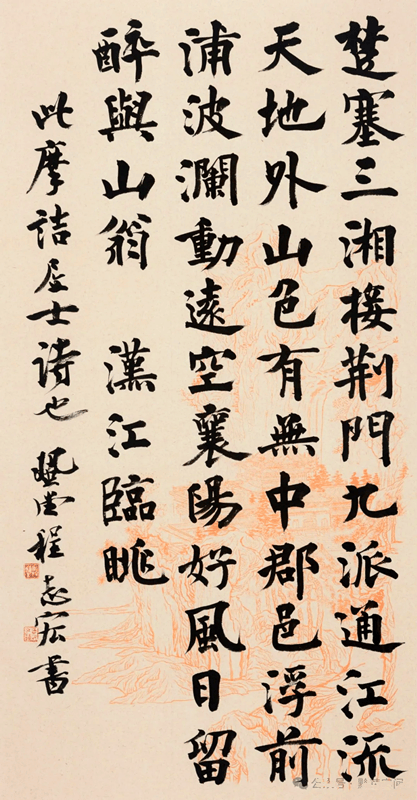 楚塞三湘接荆門九派通江流
天地外山色有無中郡邑浮前
浦波瀾動遠空襄陽好風日留
醉與山翁 漢江臨眺
此摩詰居士詩也 堂程志宏書
公众号